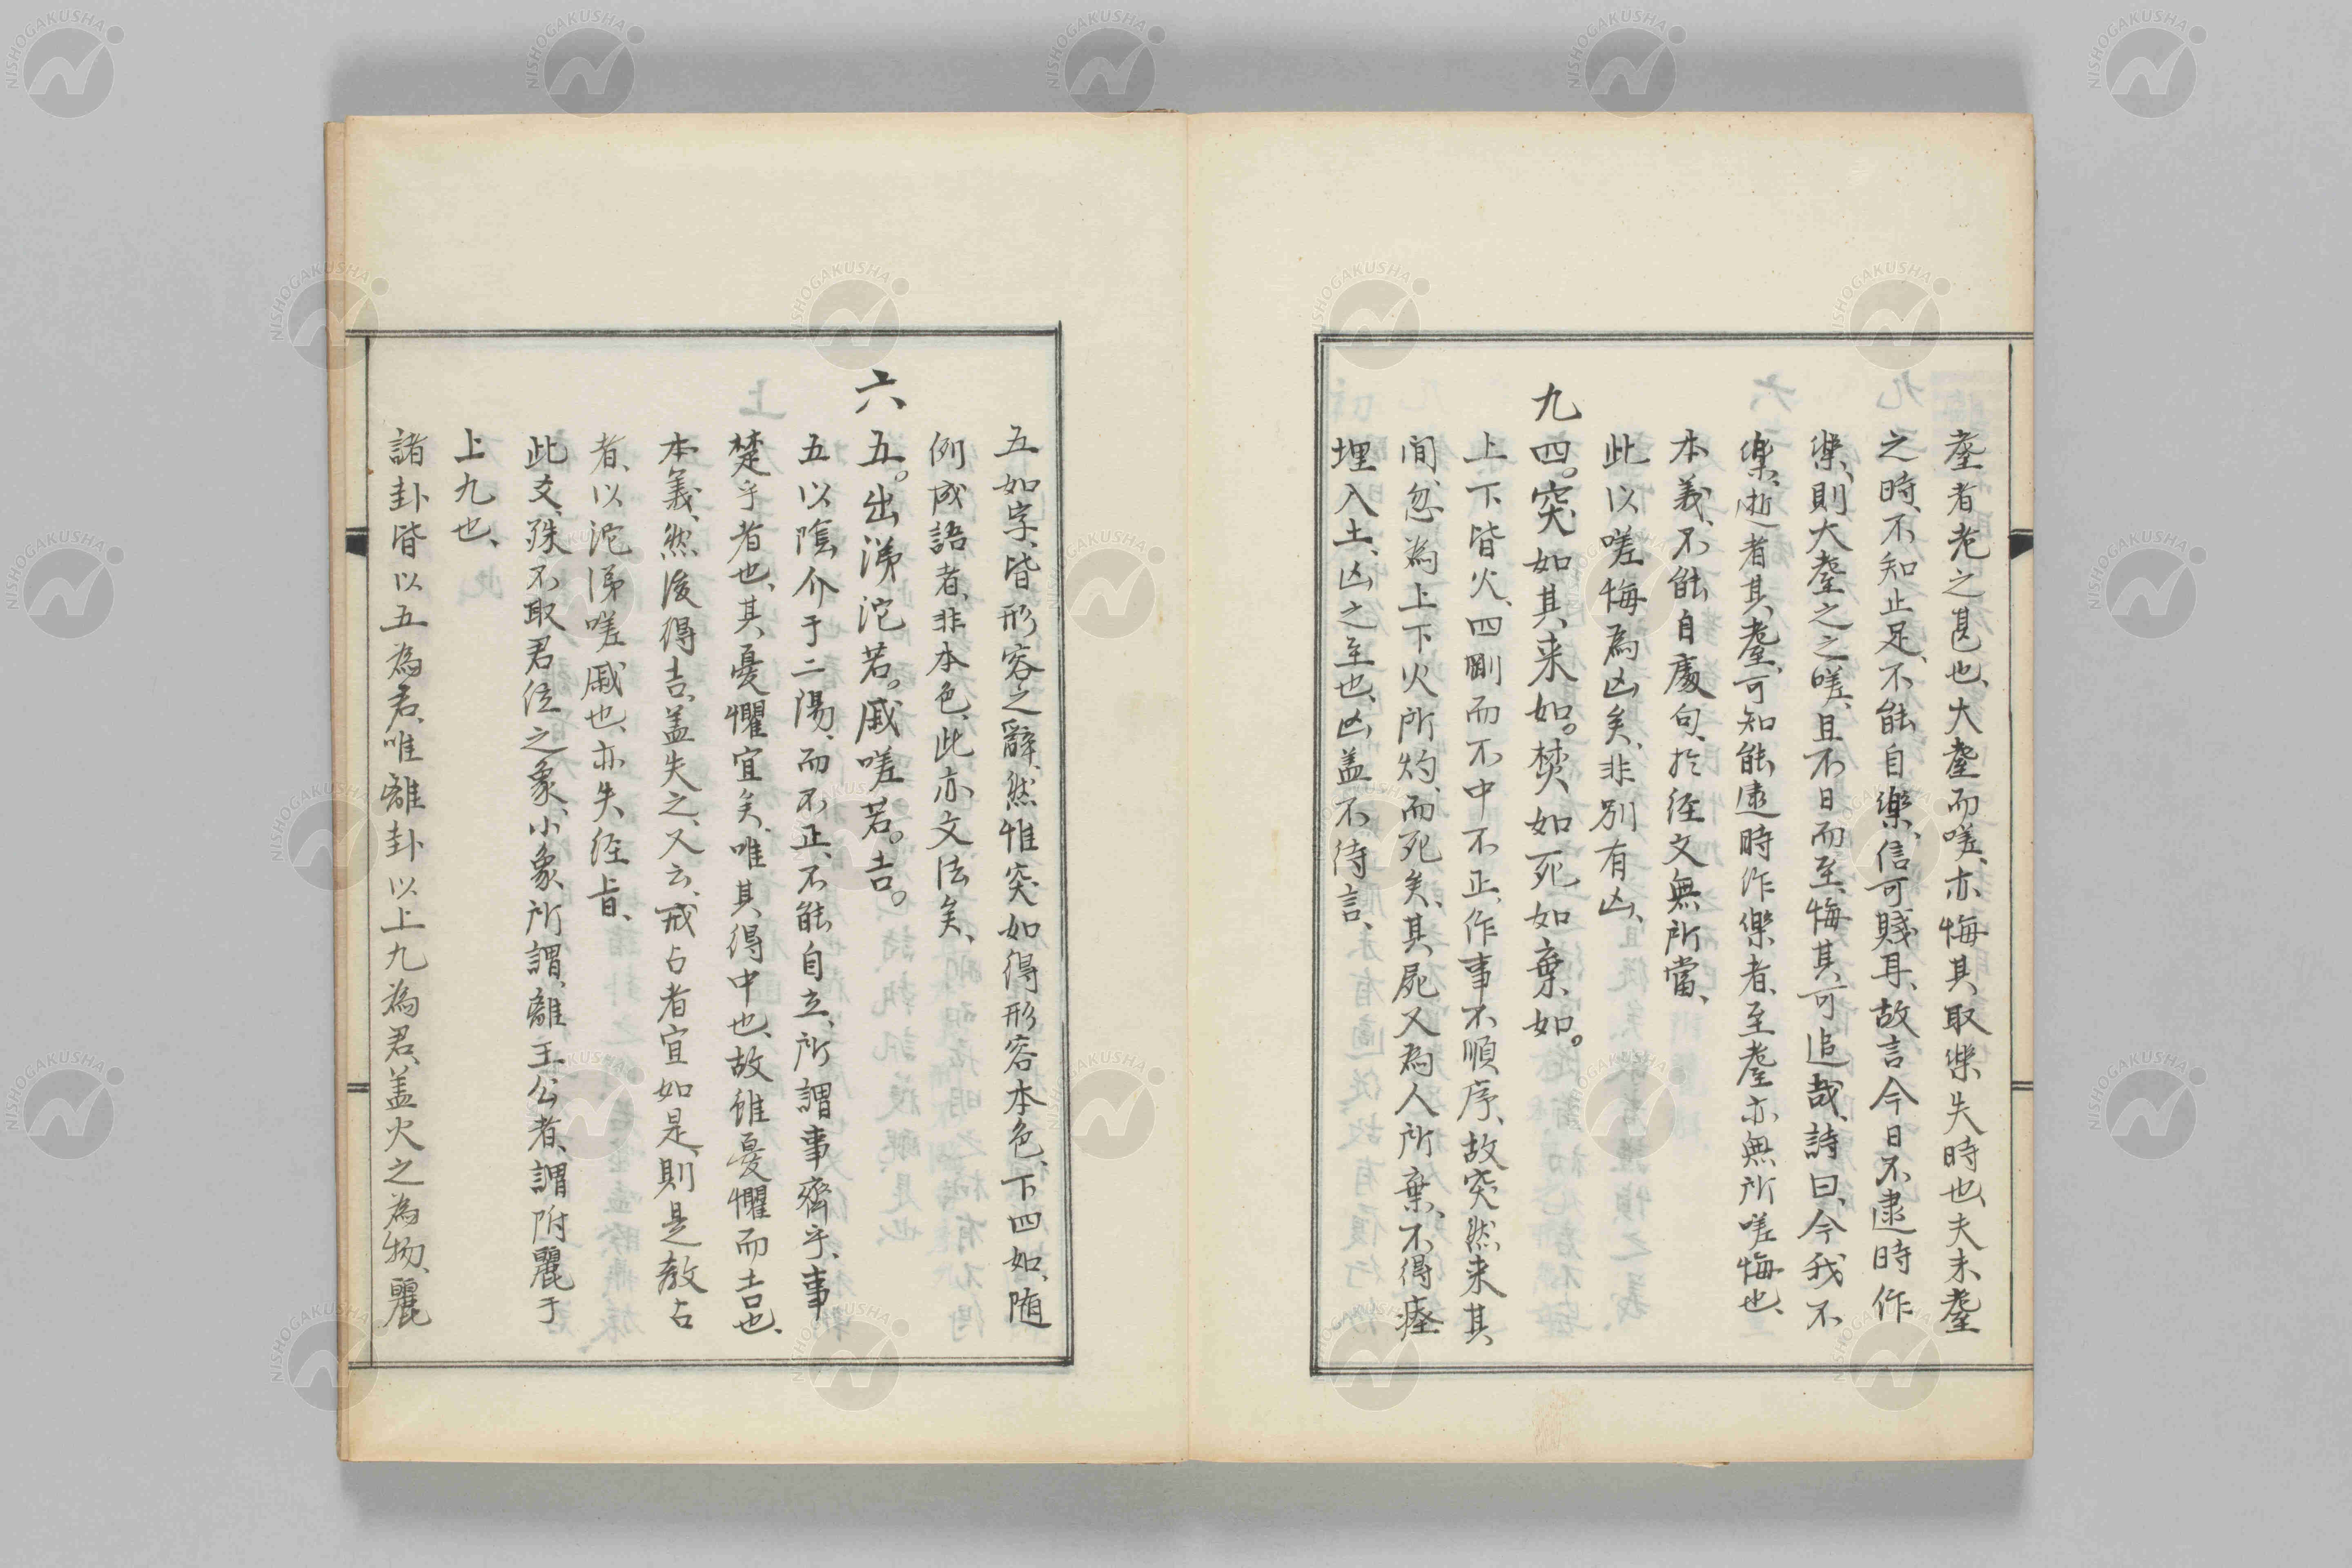 耋者老之甚也、大耋而嗟、亦悔其取楽失時也、夫未耋
之時、不知止足、不能自楽、信可賤耳、故言今日不逮時作
楽、則大耋之之嗟、且不日而至、悔其可追哉、詩曰、今我不
楽、逝者其耋、可知能逮時作楽者、至耋亦無所嗟悔也、
本義、不能自處句、於経文無所當、
此以嗟悔為凶矣、非別有凶、
九四。突如其来如。焚如死如棄如。
上下皆火、四剛而不中不正、作事不順序、故突然来其
間、忽為上下火所灼、而死矣、其屍又為人所棄、不得瘞
埋入土、凶之至也、凶盖不待言、
五如字、皆形容之辭、然惟突如得形容本色、下四如、随
例成語者、非本色、此亦文法矣、
六五。出涕沱若。戚嗟若。吉。
五以陰介于二陽、而不正、不能自立、所謂事齊乎、事
楚乎者也、其憂懼宜矣、唯其得中也、故雖憂懼而吉也、
本義、然後得吉、盖失之、又云、戒占者宜如是、則是教占
者、以沱涕嗟戚也、亦失経旨、
此爻、殊不取君位之象、小象所謂、離王公者、謂附麗于
上九也、
諸卦皆以五為君、唯離卦以上九為君、盖火之為物、麗
NISHOGAKUSHA